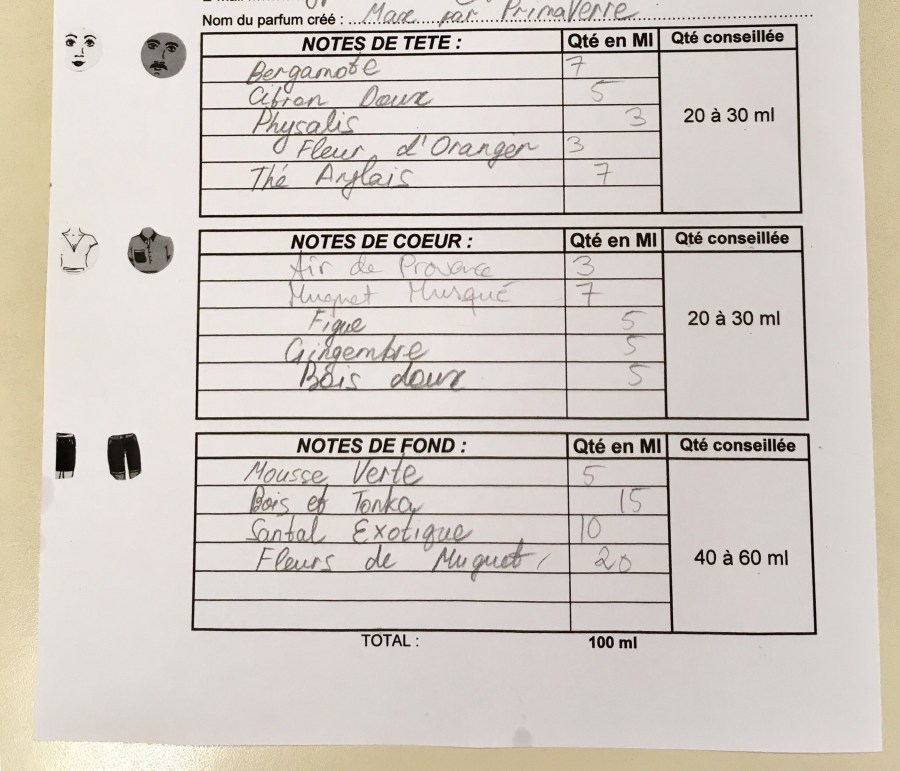 Nom du parfum créé : Marc par PrimaVerre
NOTES DE TETE : Qté en Ml Qté conseillée
Bergamote 7
Citron Doux 5
Physalis 3
20 à 30 ml
Fleur d'Oranger 3
Thé Anglais 7
NOTES DE COEUR : Qté en Ml Qté conseillée
Air de Provence 3
Muguet Musqué 7
Figue 5
20 à 30 ml
Gingembre 5
Bois doux 5
NOTES DE FOND : Qté en Ml Qté conseillée
Mousse Verte 5
Bois et Tonka 15
Santal Exotique 10
Fleurs de Muguet 20
40 à 60 ml
TOTAL : 100 ml